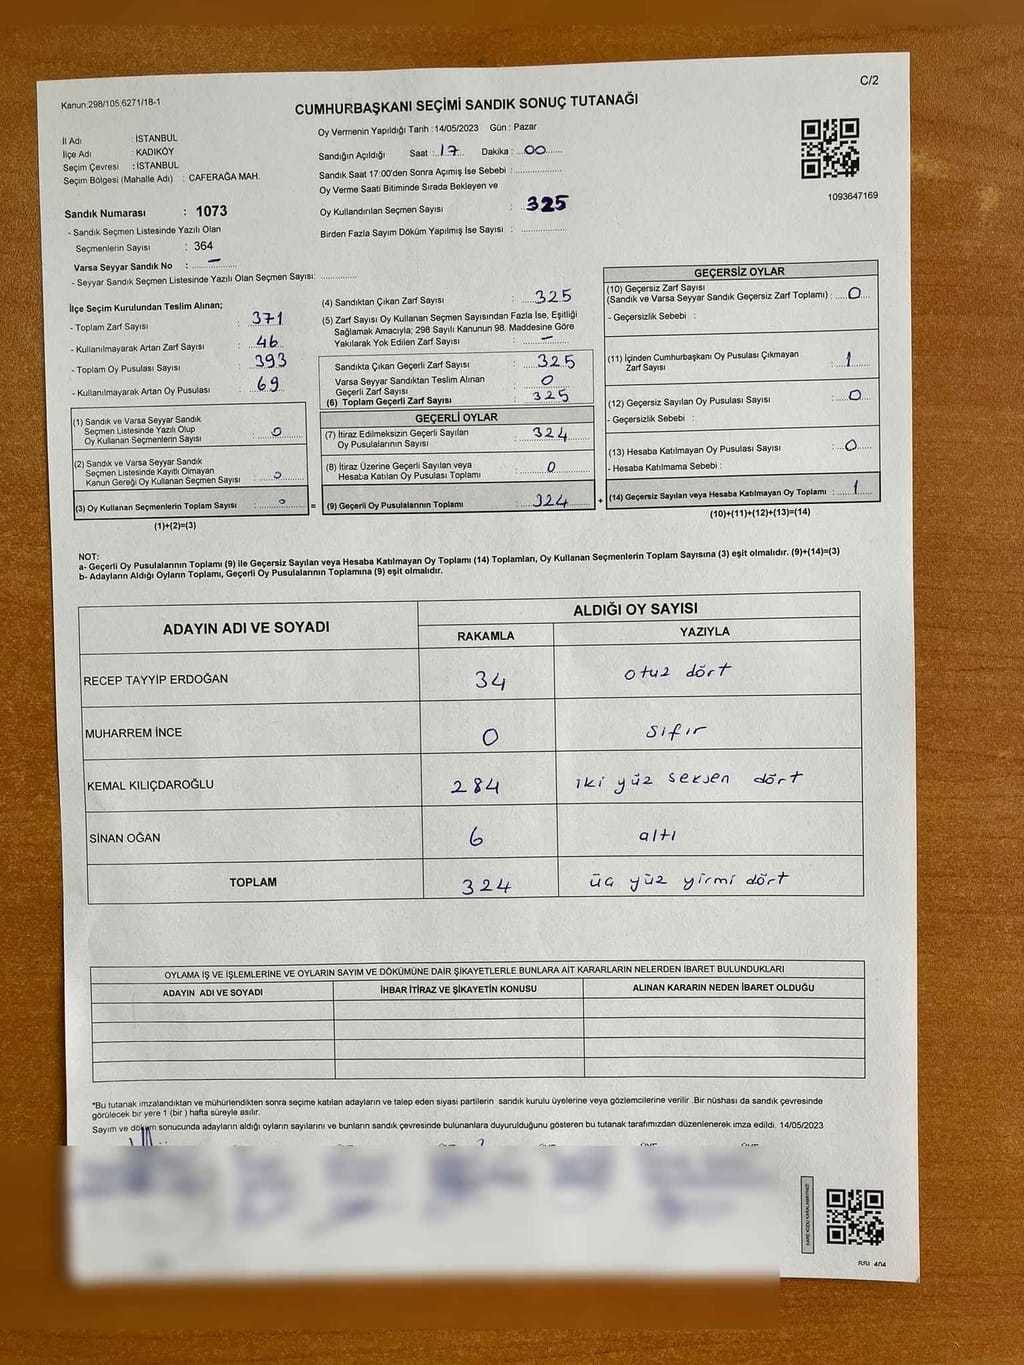 Kanun:298/105,6271/18-1
C/2
CUMHURBAŞKANI SEÇİMİ SANDIK SONUÇ TUTANAĞI
İl Adı : İSTANBUL
İlçe Adı : KADIKÖY
Seçim Çevresi : İSTANBUL
Seçim Bölgesi (Mahalle Adı) : CAFERAĞA MAH.
Sandık Numarası : 1073
- Sandık Seçmen Listesinde Yazılı Olan
Seçmenlerin Sayısı : 364
Varsa Seyyar Sandık No : –
- Seyyar Sandık Seçmen Listesinde Yazılı Olan Seçmen Sayısı:
Oy Vermenin Yapıldığı Tarih : 14/05/2023 Gün : Pazar
Sandığın Açıldığı Saat : 17 Dakika : 00
Sandık Saat 17:00'den Sonra Açımış İse Sebebi :
Oy Verme Saati Bitiminde Sırada Bekleyen ve
Oy Kullandırılan Seçmen Sayısı : 325
Birden Fazla Sayım Döküm Yapılmış İse Sayısı :
1093647169
İlçe Seçim Kurulundan Teslim Alınan;
- Toplam Zarf Sayısı : 371
- Kullanılmayarak Artan Zarf Sayısı : 46
- Toplam Oy Pusulası Sayısı : 393
- Kullanılmayarak Artan Oy Pusulası : 69
(1) Sandık ve Varsa Seyyar Sandık
Seçmen Listesinde Yazılı Olup
Oy Kullanan Seçmenlerin Sayısı : 0
(2) Sandık ve Varsa Seyyar Sandık
Seçmen Listesinde Kayıtlı Olmayan
Kanun Gereği Oy Kullanan Seçmen Sayısı : 0
(3) Oy Kullanan Seçmenlerin Toplam Sayısı : 0 =
(1)+(2)=(3)
(4) Sandıktan Çıkan Zarf Sayısı : 325
(5) Zarf Sayısı Oy Kullanan Seçmen Sayısından Fazla İse, Eşitliği
Sağlamak Amacıyla; 298 Sayılı Kanunun 98. Maddesine Göre
Yakılarak Yok Edilen Zarf Sayısı : –
Sandıkta Çıkan Geçerli Zarf Sayısı : 325
Varsa Seyyar Sandıktan Teslim Alınan
Geçerli Zarf Sayısı : 0
(6) Toplam Geçerli Zarf Sayısı : 325
GEÇERLİ OYLAR
(7) İtiraz Edilmeksizin Geçerli Sayılan
Oy Pusulalarının Sayısı : 324
(8) İtiraz Üzerine Geçerli Sayılan veya
Hesaba Katılan Oy Pusulası Toplamı : 0
(9) Geçerli Oy Pusulalarının Toplamı : 324 +
GEÇERSİZ OYLAR
(10) Geçersiz Zarf Sayısı
(Sandık ve Varsa Seyyar Sandık Geçersiz Zarf Toplamı) : 0
- Geçersizlik Sebebi :
(11) İçinden Cumhurbaşkanı Oy Pusulası Çıkmayan
Zarf Sayısı : 1
(12) Geçersiz Sayılan Oy Pusulası Sayısı : 0
- Geçersizlik Sebebi :
(13) Hesaba Katılmayan Oy Pusulası Sayısı : 0
- Hesaba Katılmama Sebebi :
(14) Geçersiz Sayılan veya Hesaba Katılmayan Oy Toplamı : 1
(10)+(11)+(12)+(13)=(14)
NOT:
a- Geçerli Oy Pusulalarının Toplamı (9) ile Geçersiz Sayılan veya Hesaba Katılmayan Oy Toplamı (14) Toplamları, Oy Kullanan Seçmenlerin Toplam Sayısına (3) eşit olmalıdır. (9)+(14)=(3)
b- Adayların Aldığı Oyların Toplamı, Geçerli Oy Pusulalarının Toplamına (9) eşit olmalıdır.
ADAYIN ADI VE SOYADI
ALDIĞI OY SAYISI
RAKAMLA YAZIYLA
RECEP TAYYİP ERDOĞAN 34 otuz dört
MUHARREM İNCE 0 sıfır
KEMAL KILIÇDAROĞLU 284 iki yüz seksen dört
SİNAN OĞAN 6 altı
TOPLAM 324 üç yüz yirmi dört
OYLAMA İŞ VE İŞLEMLERİNE VE OYLARIN SAYIM VE DÖKÜMÜNE DAİR ŞİKAYETLERLE BUNLARA AİT KARARLARIN NELERDEN İBARET BULUNDUKLARI
ADAYIN ADI VE SOYADI İHBAR İTİRAZ VE ŞİKAYETİN KONUSU ALINAN KARARIN NEDEN İBARET OLDUĞU
*Bu tutanak imzalandıktan ve mühürlendikten sonra seçime katılan adayların ve talep eden siyasi partilerin sandık kurulu üyelerine veya gözlemcilerine verilir .Bir nüshası da sandık çevresinde
görülecek bir yere 1 (bir ) hafta süreyle asılır.
Sayım ve döküm sonucunda adayların aldığı oyların sayılarını ve bunların sandık çevresinde bulunanlara duyurulduğunu gösteren bu tutanak tarafımızdan düzenlenerek imza edildi. 14/05/2023